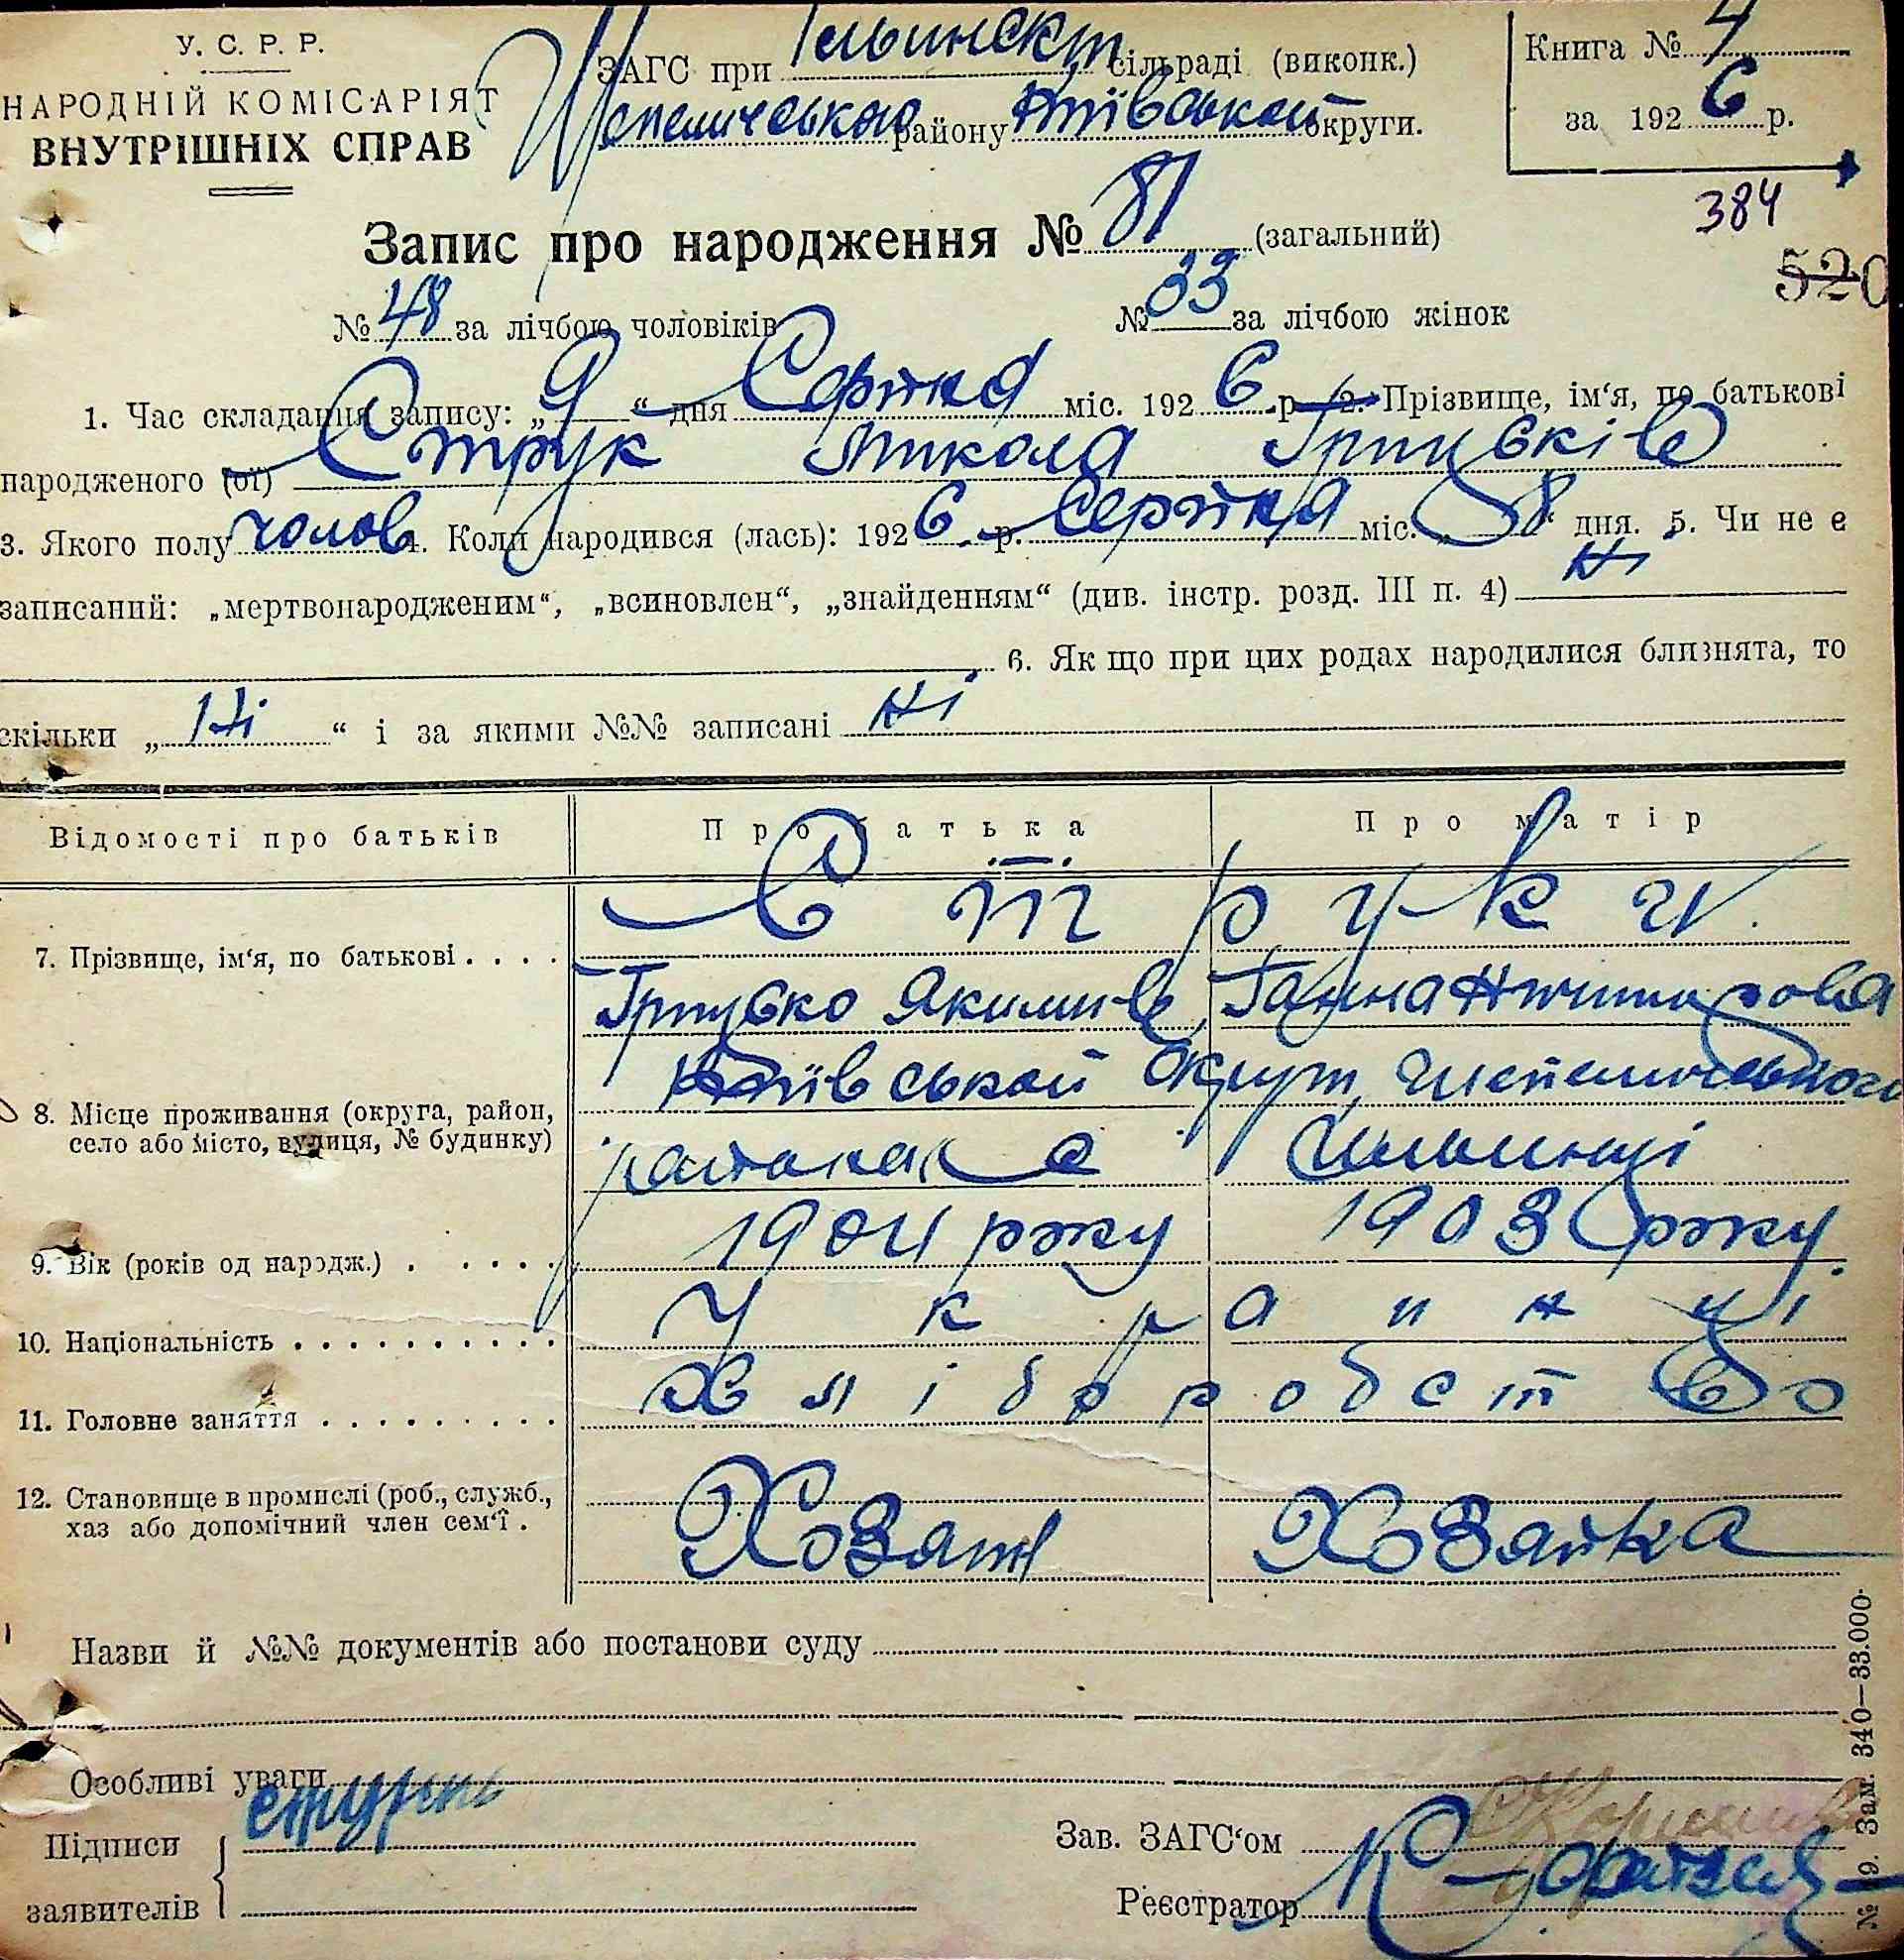 У. С. Р. Р.
НАРОДНІЙ КОМІСАРІЯТ
ВНУТРІШНІХ СПРАВ
ЗАГС при сільраді (виконк.)
Шепеличського району Київськой округи.
Книга № 4
за 1926 р.
384
520
Запис про народження № 81 (загальний)
№ 48 за лічбою чоловіків № 33 за лічбою жінок
1. Час складання запису: „9“ дня Серпня міс. 1926 р. 2. Прізвище, ім‘я, по батькові
народженого (ої) Струк Микола Грицьків
3. Якого полу чолов 4. Коли народився (лась): 1926 р. Серпня міс. „8“ дня. 5. Чи не є
записаний: „мертвонародженим“, „всиновлен“, „знайденням“ (див. інстр. розд. III п. 4) Ні
6. Як що при цих родах народилися близнята, то
скільки „Ні“ і за якими №№ записані Ні
Відомості про батьків Про батька Про матір
7. Прізвище, ім‘я, по батькові . . . . Струки
Грицько Якимів Ганна
8. Місце проживання (округа, район,
село або місто, вулиця, № будинку)
Київськой Округи, Шепелицького
района с Ильинці
9. Вік (років од народж.) . . . . . 1904 року 1903 року
10. Національність . . . . . . . . . . Украинці
11. Головне заняття . . . . . . . . . Хліборобство
12. Становище в промислі (роб., служб.,
хаз або допомічний член сем‘ї .
Хозяін Хозяйка
Назви й №№ документів або постанови суду
Особливі уваги
Підписи
заявителів
Струк
Зав. ЗАГС‘ом
Реєстратор
№ 9. Зам. 340—33.000.